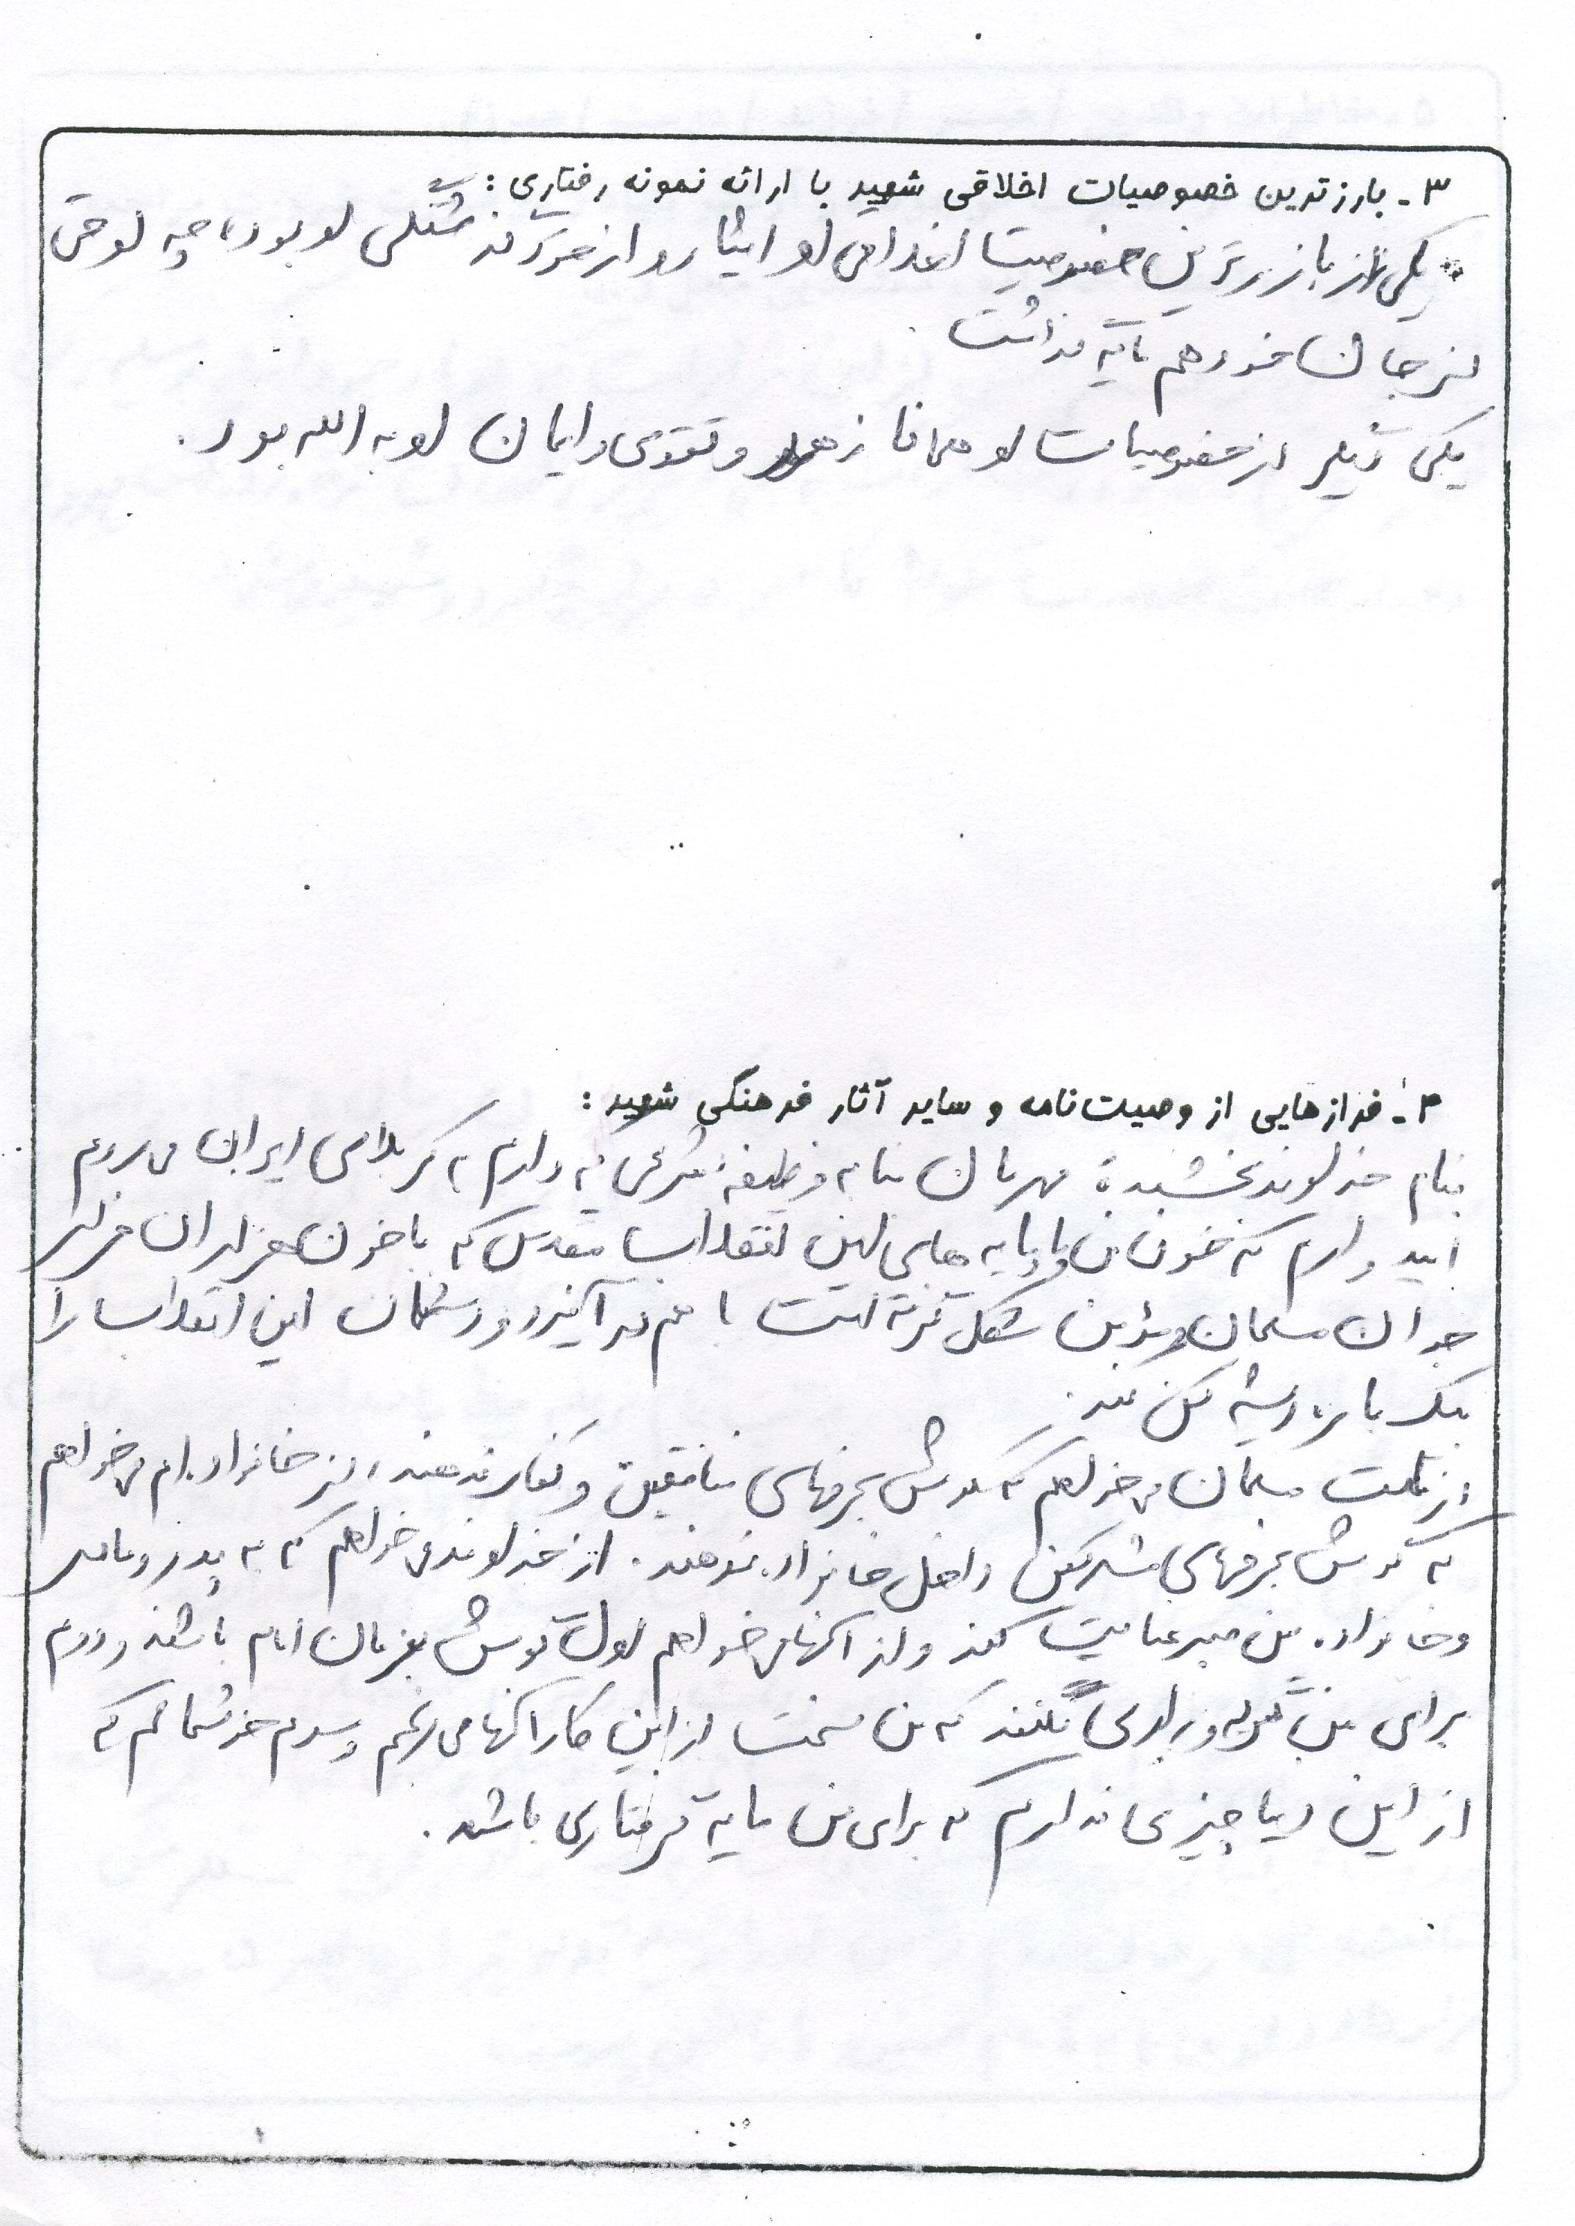 ۳ـ بارزترین خصوصیات اخلاقی شهید با ارائه نمونه رفتاری :
یکی از بارزترین خصوصیت اخلاقی او ایثار و از خود گذشتگی او بود، چه او حتی
از جان خود هم مایه گذاشت
یکی دیگر از خصوصیات او همانا زهد و تقوی و ایمان او به الله بود .
۴ـ فرازهایی از وصیت‌نامه و سایر آثار فرهنگی شهید :
بنام خداوند بخشنده مهربان بنا به وظیفه شرعی که دارم به کربلای ایران می روم
امیدوارم که خون من با پایه های این انقلاب مقدس که با خون هزاران هزار
جوان مسلمان و مؤمن شکل گرفته است با هم در آمیزد و دشمنان این انقلاب را
یک باره ریشه کن کند.
از ملت مسلمان می خواهم که گوش بحرفهای منافقین و کفار ندهند، از خانواده ام می خواهم
که گوش بحرفهای مشرکین داخل خانواده ندهند . از خداوند می خواهم که به پدر و مادر
و خانواده من صبر عنایت کند و از آنها می خواهم اول گوش بفرمان امام باشند و دوم
برای من گریه و زاری نکنند که من سخت از این کار آنها می رنجم و سوم خوشحالم که
از این دنیا چیزی ندارم که برای من مایه گرفتاری باشد .